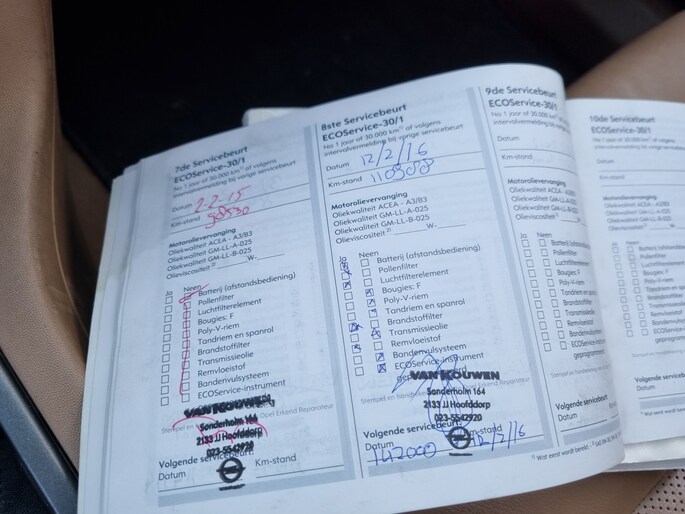 7de Servicebeurt
ECOService-30/1
No 1 jaar of 30.000 km of volgens
intervalvermelding bij vorige servicebeurt
Datum 2-2-15
Km-stand
Motorolievervanging
Oliekwaliteit ACEA - A3/B3
Oliekwaliteit GM-LL-A-025
Oliekwaliteit GM-LL-B-025
Olieviscositeit 2) W-
Ja Neen
Batterij (afstandsbediening)
Pollenfilter
Luchtfilterelement
Bougies: F
Poly-V-riem
Tandriem en spanrol
Brandstoffilter
Transmissieolie
Remvloeistof
Bandenvulsysteem
ECOService-instrument
Stempel en Opel Erkend Reparateur
VAN KOUWEN
Sonderholm 164
2133 JJ Hoofddorp
023-5542920
Volgende servicebeurt:
Datum Km-stand
8ste Servicebeurt
ECOService-30/1
No 1 jaar of 30.000 km of volgens
intervalvermelding bij vorige servicebeurt
Datum 12/2/16
Km-stand
Motorolievervanging
Oliekwaliteit ACEA - A3/B3
Oliekwaliteit GM-LL-A-025
Oliekwaliteit GM-LL-B-025
Olieviscositeit 2) W-
Ja Neen
Batterij (afstandsbediening)
Pollenfilter
Luchtfilterelement
Bougies: F
Poly-V-riem
Tandriem en spanrol
Brandstoffilter
Transmissieolie
Remvloeistof
Bandenvulsysteem
ECOService-instrument
VAN KOUWEN
Sonderholm 164
2133 JJ Hoofddorp
023-5542920
Volgende servicebeurt:
Datum Km-stand
142000 12/2/16
9de Servicebeurt
ECOService-30/1
No 1 jaar of 30.000 km
intervalvermelding bij vor
Datum
Km-stand
Motorolievervanging
Oliekwaliteit ACEA - A3
Oliekwaliteit GM-LL-A-
Oliekwaliteit GM-LL-B-
Olieviscositeit 2)
Ja Neen
Batterij (a
Pollenfilter
Luchtfilter
Bougies: F
Poly-V-riem
Tandriem en
Brandstoffil
Transmissie
Remvloeist
Bandenvul
ECOServic
geprogram
Volgende servicebe
Datum
1) Wat eerst wordt bereikt.
10de Servicebeurt
ECOService-30/1
Datum
Km-stand
Motorolievervanging
Ja Neen
Batterij (afstandsbe
Pollenfilter
Luchtfilterelement
Bougies: F
Poly-V-riem
Tandriem en spanrol
Brandstoffilter
Transmissieolie
Remvloeistof
Bandenvulsysteem
ECOService-instru
Volgende servicebeurt:
Datum